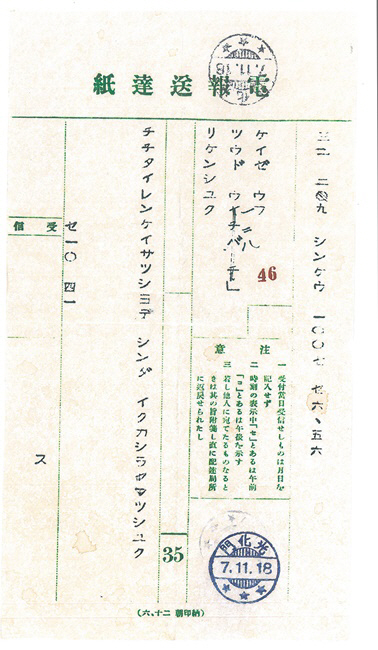 電報送達紙
7.11.18
シンケウ 一〇〇七 ゼ六、五六
ケイゼウフ
ツウドウ
リケンシユク
46
注意
一 受付當日受信せしものは月日を
記入せず
二 時刻の表示中「ゼ」とあるは午前
「ゴ」とあるは午後を示す
三 若し他人に宛てたるものなるとき
きは其の旨附箋し直に配達局所
に返戻せられたし
光化門
7.11.18
チチタイレンケイサツシヨデ シンダ イクカシラセマツシユク
35
受信
ゼ一〇 四一
ス
(六、十二 朝印納)